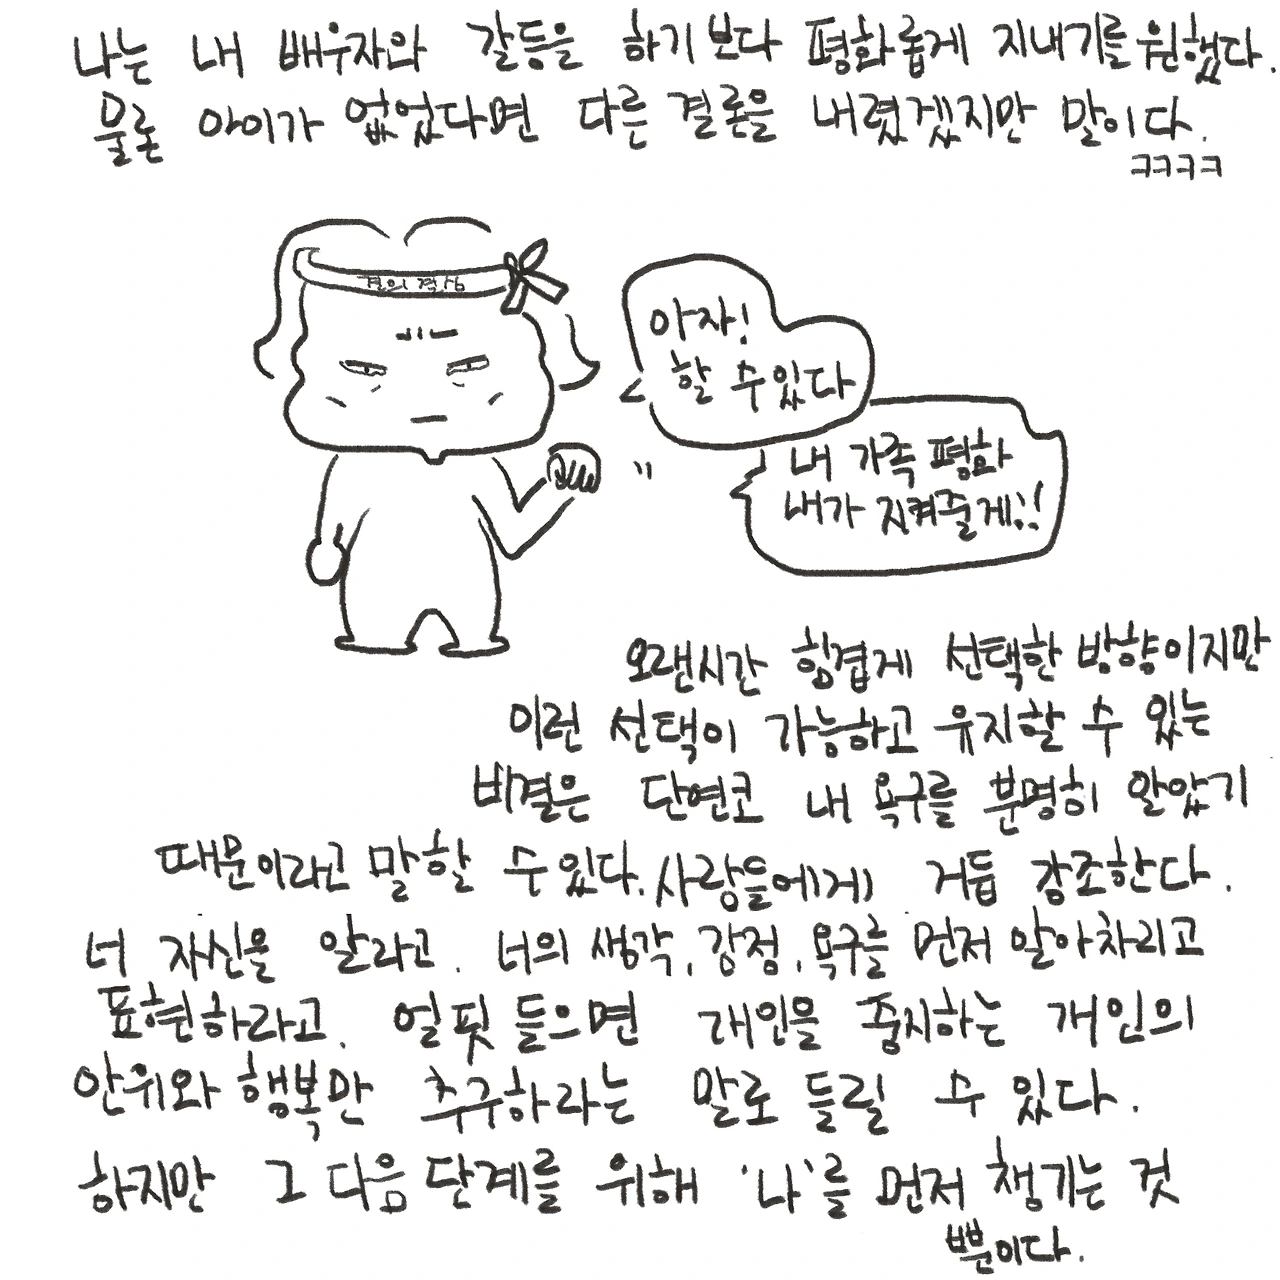 나는 내 배우자와 갈등을 하기보다 평화롭게 지내기를 원했다.
물론 아이가 없었다면 다른 결론을 내렸겠지만 말이다.
ㅋㅋㅋㅋ
결의 격상
아자!
할 수 있다
내 가족 평화
내가 지켜줄게!!
오랜시간 힘겹게 선택한 방향이지만
이런 선택이 가능하고 유지할 수 있는
비결은 단연코 내 욕구를 분명히 알았기
때문이라고 말할 수 있다. 사람들에게 거듭 강조한다.
너 자신을 알라고. 너의 생각, 감정, 욕구를 먼저 알아차리고
표현하라고. 얼핏 들으면 개인을 중시하는 개인의
안위와 행복만 추구하라는 말로 들릴 수 있다.
하지만 그 다음 단계를 위해 '나'를 먼저 챙기는 것
뿐이다.